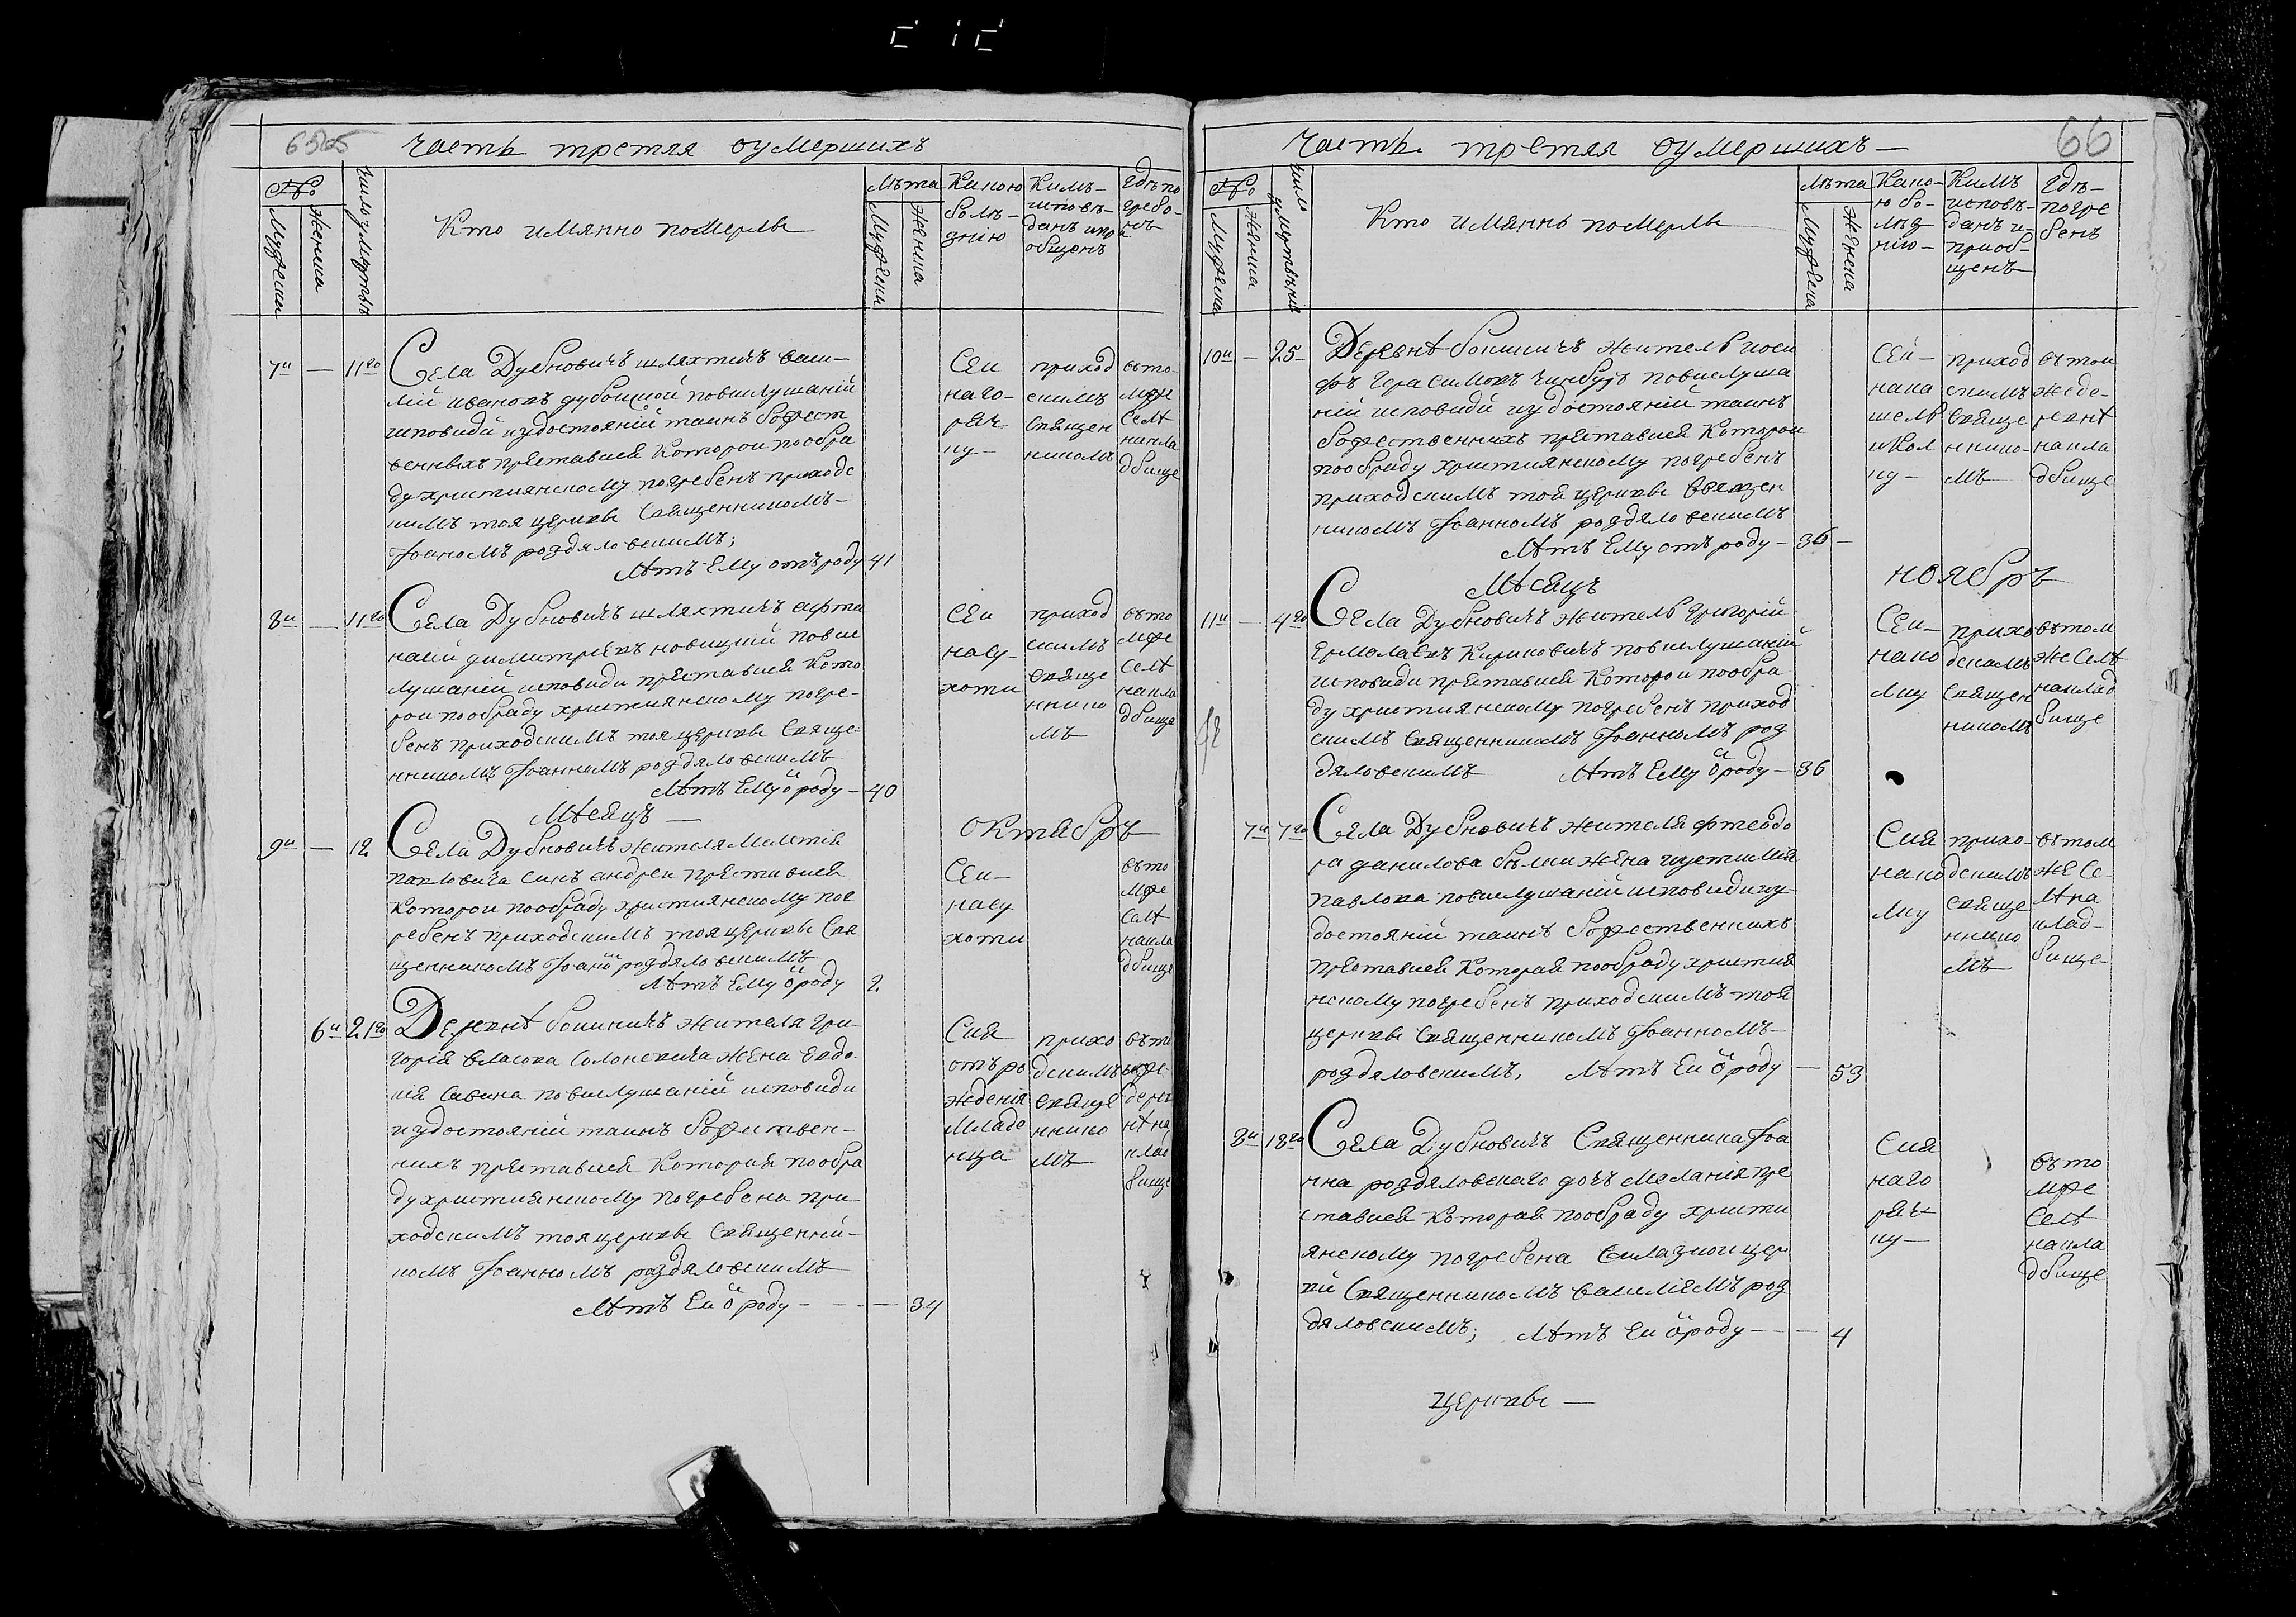 Часть третяя оумершихъ
№
Мужеска
Женска
Число умертвія
Кто имянно померлъ
Лѣта
Мужеска
Женска
Какою болѣ-
знію
Кимъ-
исповѣ-
данъ и прі
общенъ
Гдѣ по
гребе-
нъ
7й — 11го
Села Дубновичъ шляхтичъ Васи-
лій Ивановъ Дубоцкой повислушаній
исповиди иудостояній таинъ божест
венныхъ преставися которой пообра
ду християнскому погребенъ приходс
кимъ тоя церкве Священникомъ-
Іоаномъ роздяловскимъ;
Лѣтъ Ему отъ роду 41
Сеи
наго-
ряч-
ку-
приход
скимъ
Священ
никомъ
въто-
мже
Селѣ
накла
дбище
8й — 11го
Села Дубновичъ шляхтичъ афта
насій димитрѣвъ новицкій повис
лушаній исповиди преставися Кото
рои пообраду християнскому погре-
бенъ приходскимъ тоя церкве Свяще-
нникомъ Іоанномъ роздяловскимъ
Лѣтъ Ему ѿ роду — 40
Сеи
насу-
хоти
приход
скимъ
Свяще
ннико
мъ
въто
мже
Селѣ
накла
дбище
Мѣсяцъ — октябръ
9й — 12
Села Дубновичъ жителя
павловича Синъ андреи преставися
которои пообраду християнскому пог
ребенъ приходскимъ тоя церкве Свя
щенникомъ Іоано роздяловскимъ
Лѣтъ Ему ѿ роду 2
Сеи-
насу
хоти
въто
мже
Селѣ
накла
дбище
6й 21го
Деревнѣ жителя гри-
горія власова Солоневича жена Евдо-
кія Савина повислушаній исповиди
иудостояній таинъ божествен-
нихъ преставися Которая пообра
ду християнскому погребена при-
ходскимъ тоя церкве Священни-
комъ Іоанномъ роздяловскимъ
Лѣтъ Еи ѿ роду - - - 34
Сия
отъ ро
жденія
младе
нца
прихо
дскимъ
Свяще
ннико
мъ
вътои
же
дерев
нѣ на
клад
бище
Часть третяя оумершихъ —
66
№
Мужеска
Женска
Число умертвія
Кто имянно померлъ
Лѣта
Мужеска
Женска
Како-
ю бо-
лѣз
нію-
Кимъ
исповѣ-
данъ и-
приоб-
щенъ
Гдѣ-
погре
бенъ
10й — 25-
Деревнѣ житель иоси
фъ Герасимовъ повислуша
ній исповиди иудостояній таинъ
божественнихъ преставися Которои
пообраду християнскому погребенъ
приходскимъ тоя церкве Священ
никомъ Іоанномъ роздяловскимъ
Лѣтъ Ему отъ роду — 36 —
Сей-
нака
шель
икол
ку-
приход
скимъ
Свяще
ннико-
мъ
вътои
же де-
ревнѣ
накла
дбище
Мѣсяцъ ноябръ
11й — 4го
Села Дубновичъ житель Григорій
Ермолаевъ Кириковичъ повислушаній
исповиди преставися Которои пообра
ду християнскому погребенъ приход
скимъ Священникомъ Іоанномъ роз
дяловскимъ Лѣтъ Ему ѿ роду — 36
Сеи-
нако
лку
прихо
дскимъ
Священ
никомъ
вътом
же Селѣ
наклад
бище
7й 7го
Села Дубновичъ жителя фтеодо
ра данилова жена иустинія
павлова повислушаній исповиди иу-
достояній таинъ божественнихъ
преставися Которая пообраду християн
нскому погребенъ приходскимъ тоя
церкве Священникомъ Іоанномъ
роздяловскимъ, Лѣтъ Еи ѿ роду — 53
Сия
нако
лку
прихо-
дскимъ
Свяще
ннико
мъ
вътом
же Се-
лѣ на
клад-
бище-
8й 18го
Села Дубновичъ Священника Іоа
нна роздяловскаго дочъ Меланія пре
ставися которая пообраду христи
янскому погребена цер
кви Священникомъ василіемъ роз
дяловскимъ; Лѣтъ Еи ѿ роду - - - 4
Сия
наго
ряч-
ку-
въто
мже
Селѣ
накла
дбище
церкве —